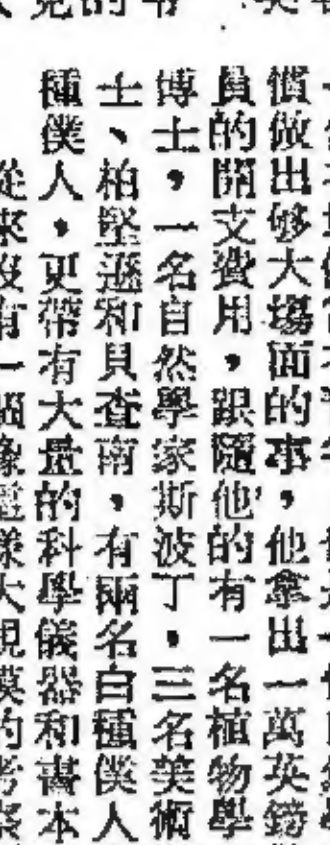 慣做出够大場面的事，他拿出一萬英鎊
員的開支費用，跟隨他的有一名植物學
博士，一名自然學家斯波丁，三名美術
士、柏堅遜和貝查南，有兩名白種僕人
種僕人，更帶有大量的科學儀器和書本
從來沒有一個像這樣大規模的考察